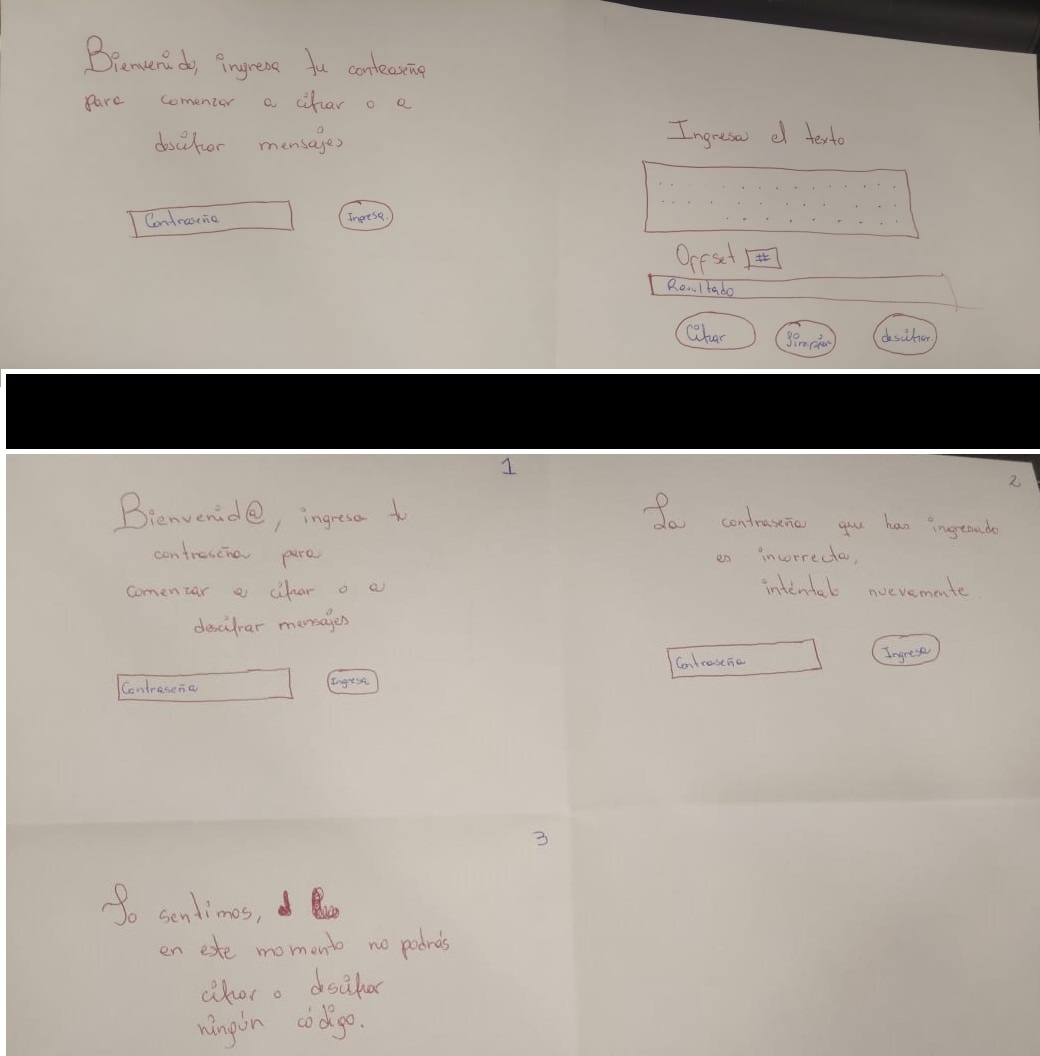 Bienvenido, ingresa tu contraseña
para comenzar a cifrar o a
descifrar mensajes
Contraseña
Ingresa
Ingresa el texto
Offset #
Resultado
Cifrar
limpiar
descifrar
1
Bienvenid@, ingresa tu
contraseña para
comenzar a cifrar o a
descifrar mensajes
Contraseña
Ingresa
2
La contraseña que has ingresado
es incorrecta,
inténtalo nuevamente.
Contraseña
Ingresa
3
Lo sentimos,
en este momento no podrás
cifrar o descifrar
ningún código.